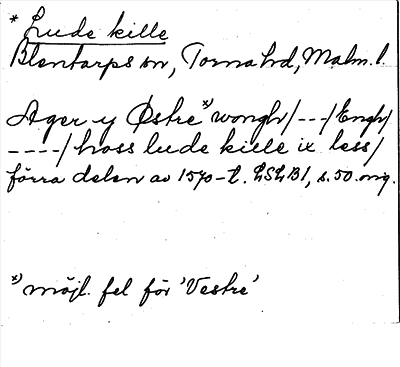 * Lude kille
Blentarps sn, Torna hd, Malm. l.
Ager y Østre *) wongh/---/Engh/
----/hoss lude kille ix less/
förra delen av 1570-t. LSLB1, s. 50. omg.
*) möjl. fel för 'Vestre'